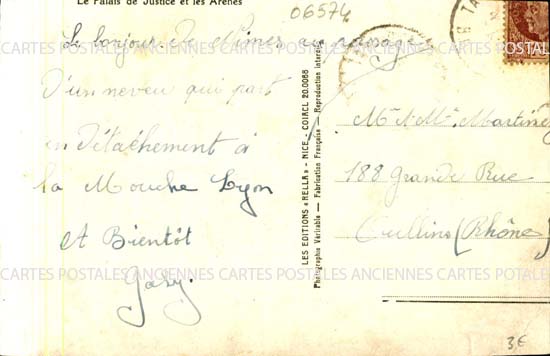 Le Palais de Justice et les Arènes
06574
Le bonjour de Nîmes au passage
D'un neveu qui part
en Détachement à
la Mouche Lyon
et Bientôt
Gaby.
LES EDITIONS « RELLA » - NICE - COIRCL 20.0066
Photographie Véritable - Fabrication Française - Reproduction interdite
Mr et Me Martinez
188 Grande Rue
Oullins (Rhône)
CARTES POSTALES ANCIENNES CARTES POSTALES ANCIENNES CARTES POSTALES
CARTES POSTALES ANCIENNES CARTES POSTALES ANCIENNES CARTES POSTALES
3€